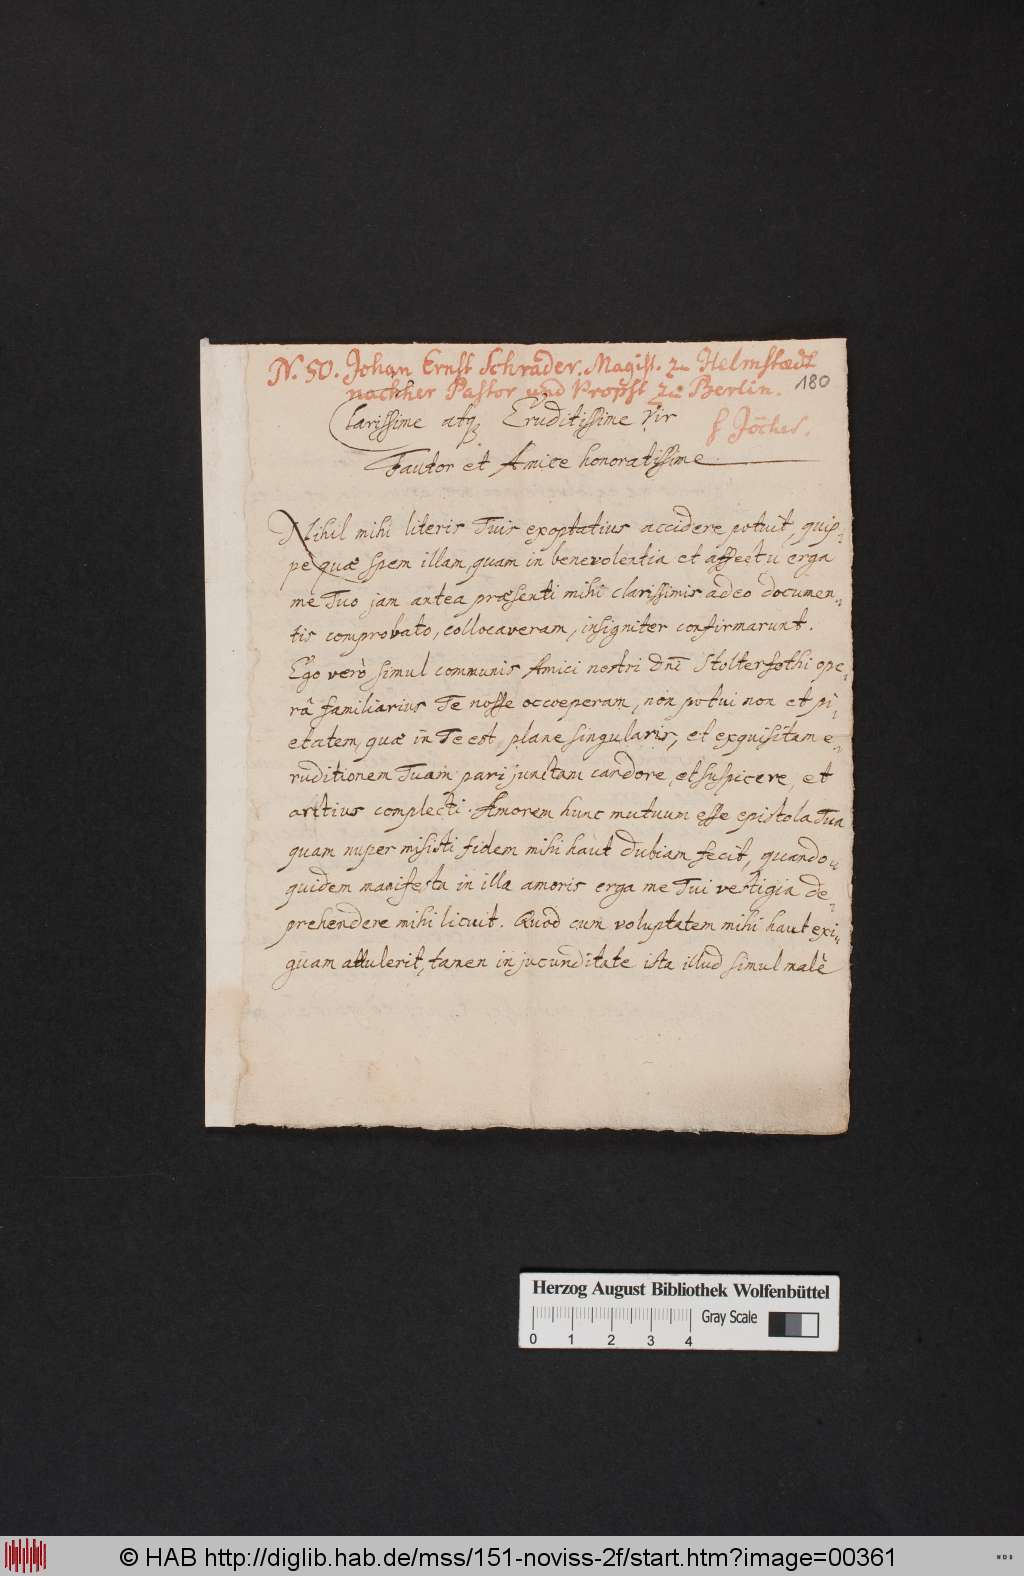 N. 50. Johan Ernst Schrader. Magist. zu Helmstædt
nachher Pastor und Probst zu Berlin. 180
Clarissime atq. Eruditissime Vir
f Jöcher.
Fautor et Amice honoratissime
Nihil mihi literis Tuis exoptatius accidere potuit, quip-
pe quæ spem illam, quam in benevolentia et affectu erga
me Tuo jam antea præsenti mihi clarissimis adeo documen-
tis comprobato, collocaveram, insigniter confirmarunt.
Ego verò simul communis Amici nostri Dnī Stolterfothi ope-
râ familiarius Te nosse occoeperam, non potui non et pi-
etatem, quæ in Te est, plane singularis, et exquisitam e-
ruditionem Tuam pari junctam candore, et suspicere, et
arctius complecti. Amorem hunc mutuum esse epistola Tua
quam nuper misisti fidem mihi haut dubiam fecit, quando-
quidem manifesta in illa amoris erga me Tui vestigia de-
prehendere mihi licuit. Quod cum voluptatem mihi haut exi-
guam attulerit, tamen in jucunditate ista illud simul malè
Herzog August Bibliothek Wolfenbüttel
Gray Scale
0 1 2 3 4
© HAB http://diglib.hab.de/mss/151-noviss-2f/start.htm?image=00361